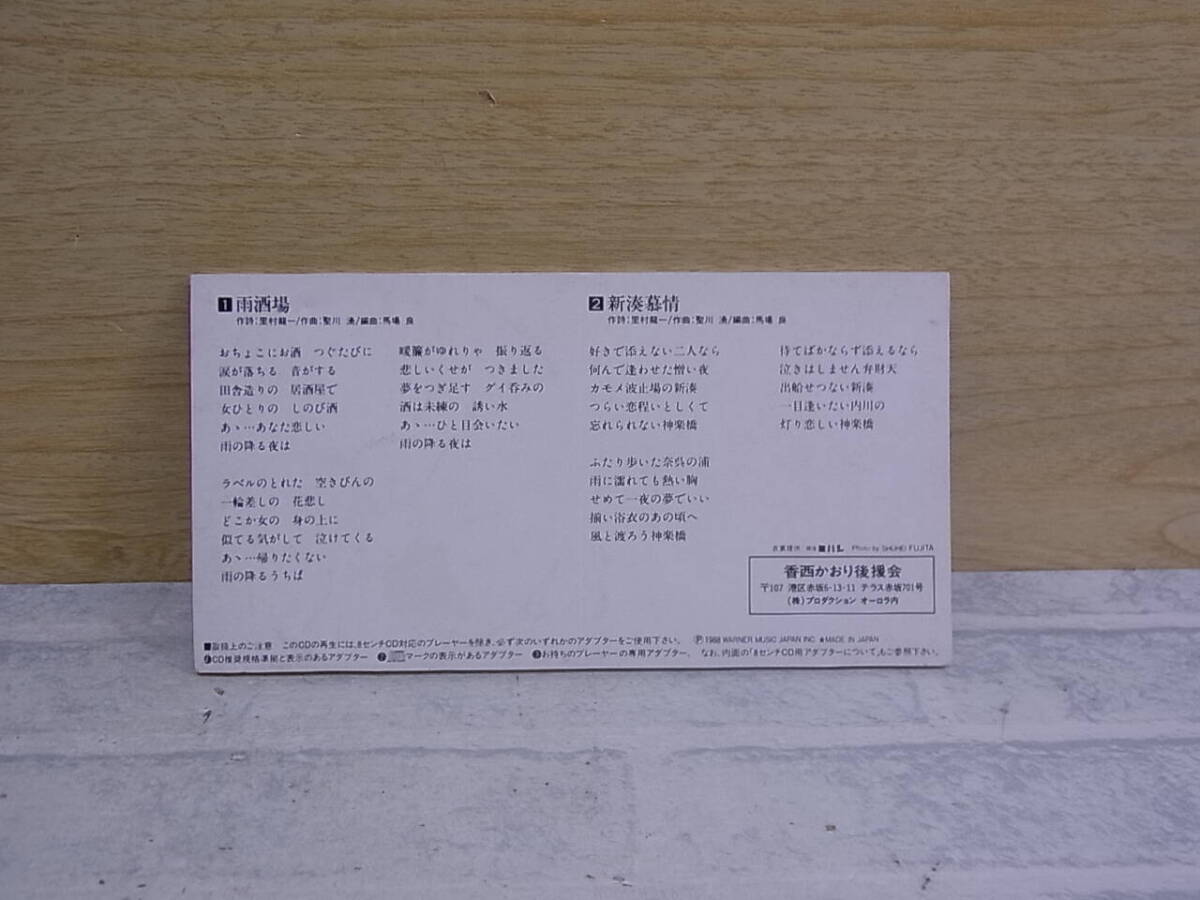 1 雨酒場
作詩:里村龍一/作曲:聖川 湧/編曲:馬場 良
おちょこにお酒 つぐたびに
涙が落ちる 音がする
田舎造りの 居酒屋で
女ひとりの しのび酒
あゝ…あなた恋しい
雨の降る夜は
ラベルのとれた 空きびんの
一輪差しの 花悲し
どこか女の 身の上に
似てる気がして 泣けてくる
あゝ…帰りたくない
雨の降るうちは
暖簾がゆれりゃ 振り返る
悲しいくせが つきました
夢をつぎ足す グイ呑みの
酒は未練の 誘い水
あゝ…ひと目会いたい
雨の降る夜は
2 新湊慕情
作詩:里村龍一/作曲:聖川 湧/編曲:馬場 良
好きで添えない二人なら
何んで逢わせた憎い夜
カモメ波止場の新湊
つらい恋程いとしくて
忘れられない神楽橋
ふたり歩いた奈呉の浦
雨に濡れても熱い胸
せめて一夜の夢でいい
揃い浴衣のあの頃へ
風と渡ろう神楽橋
待てばかならず添えるなら
泣きはしません弁財天
出船せつない新湊
一目逢いたい内川の
灯り恋しい神楽橋
衣裳提供: Photo by SHUHEI FUJITA
香西かおり後援会
〒107 港区赤坂6-13-11 テラス赤坂701号
(株)プロダクション オーロラ内
■取扱上のご注意 このCDの再生には、8センチCD対応のプレーヤーを除き、必ず次のいずれかのアダプターをご使用下さい。 Ⓟ1988 WARNER MUSIC JAPAN INC. ★MADE IN JAPAN
❶CD推奨規格準拠と表示のあるアダプター ❷マークの表示があるアダプター ❸お持ちのプレーヤーの専用アダプター。 なお、内面の「8センチCD用アダプターについて」もご参照下さい。